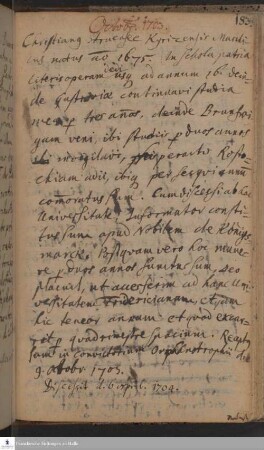 Christiang Arnenke Kyrizensis Marchi
natus aō 1675. In schola patria
literis operam dedi usq. ad annum 16. dein
de Gustrovii continuavi studia
per tres años. deinde Brunsvi
gam veni, ibi studiis p duos annos
Rosto
chium adii, ibiq. per sesquiannum
commoratus sum. Cum discessissem ab hac
Universitate Informator consti
tutus sum apud Nobilem de Königs
marck. Postquam vero hoc mune
re p duos annos functus sum, Deo
placuit, ut accesserim ad hanc Uni
versitatem Fridericianam, et jam
hic teneo annum et quod excur
rit, quadrimestre spatium. Recep
tus sum in convictorium Orphanotrophii die
9. Octobr 1703.
Discessit d. 6 April. 1704.